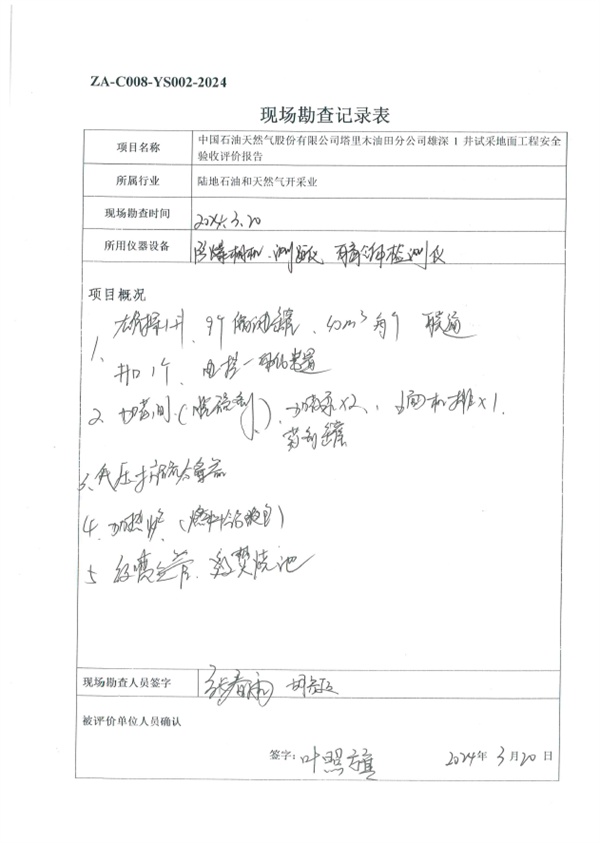 ZA-C008-YS002-2024
现场勘查记录表
项目名称
中国石油天然气股份有限公司塔里木油田分公司雄深 1 井试采地面工程安全
验收评价报告
所属行业
陆地石油和天然气开采业
现场勘查时间
2024.3.20
所用仪器设备
防爆相机、测距仪、可燃气体检测仪
项目概况
1、雄探1井、9个储油罐、40m³每个 联通
井口1个、电控一体化装置
2、加药间()、加药泵×2、轴流机排×1、
药剂罐
3、低压
4、加热炉、(燃料)
5、放空管、焚烧池
现场勘查人员签字
张春雨
被评价单位人员确认
签字：叶照
2024年 3月20日